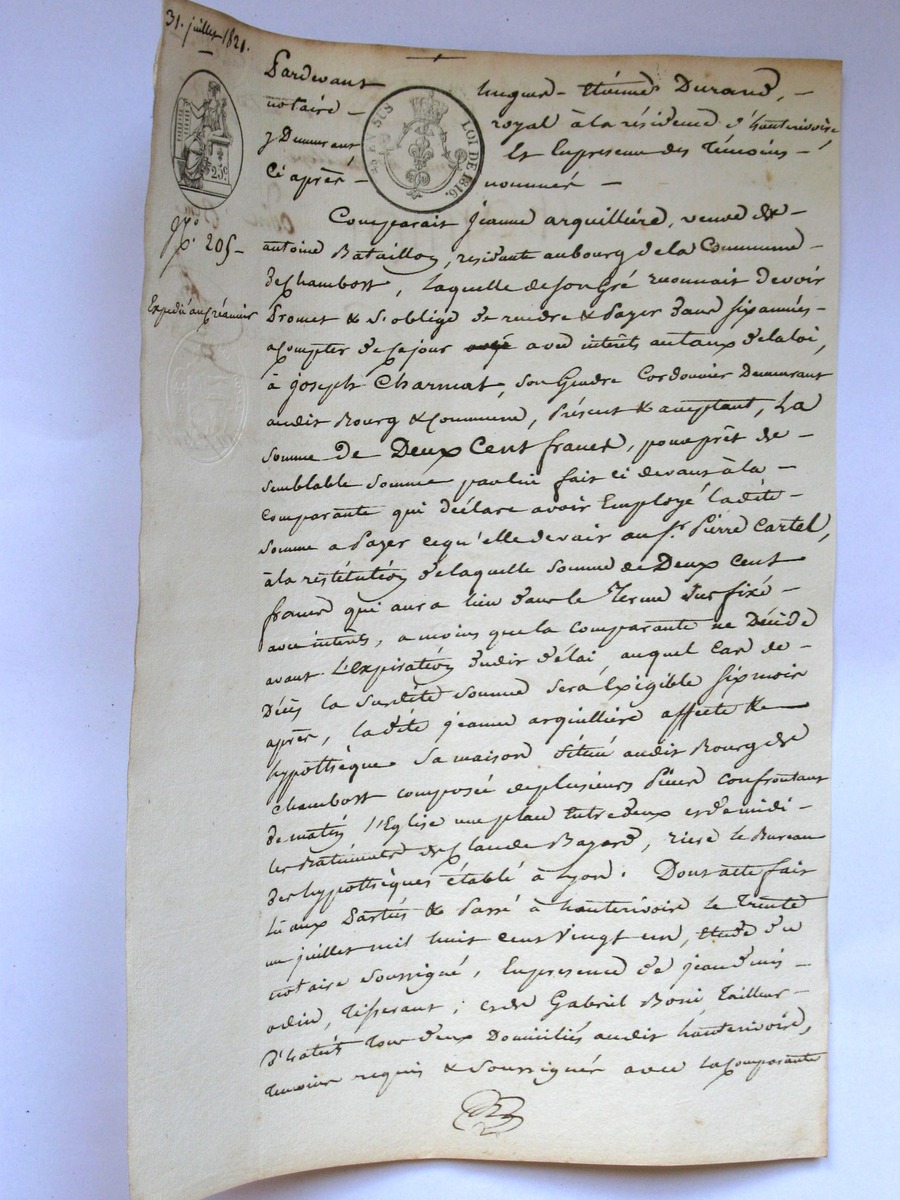 31. juillet 1821.
25c.
EN SUS
LOI DE 1816.
Pardevant hugues - Étienne Durand, -
notaire - royal à la résidence d'hauterivoire
y Demeurant Et En presence des Témoins -
Ci après - nommés -
No. 205 -
Comparait jeanne arquillière, veuve de -
antoine Bataillon, residante au bourg de la Commune -
de Chambost, laquelle de son gré reconnait devoir
Expedié au Créancier
Promet & s'oblige de rendre & Payer dans six années -
a Compter de ce jour avec intérêts au taux de la loi,
à joseph Charmat, son Gendre Cordonnier Demeurant
audit Bourg & Commune, Présent & acceptant, La
somme de Deux Cent francs, pour prêt de -
semblable somme par lui fait ci devant à la -
Comparante qui déclare avoir Employé ladite -
somme a Payer ce qu'elle devait au Sr. Pierre Cartel,
à la restitution de laquelle somme de Deux Cent
francs qui aura lieu dans le Terme sus fixé -
avec intérêts, a moins que la comparante ne Décède
avant L'expiration dudit délai, auquel Cas de -
Décès la susdite somme sera Exigible six mois
après, ladite jeanne arquillière affecte &
hypothèque sa maison située audit Bourg de
Chambost composée de plusieurs Pièces confrontant
de matin l'Eglise une place Entre deux et de midi -
les Batiments de Claude Bazard, riere le Bureau
des hypothèques établé à Lyon. Dont acte fait
lu aux Parties & Passé à hauterivoire le Trente
un juillet mil huit cent vingt un, Etude du
notaire soussigné, En presence de jean denis -
odin, Tisserant; et de Gabriel Boni Tailleur -
d'habits Tous deux Domiciliés audit hauterivoire,
Temoins requis & soussignés avec la Comparante